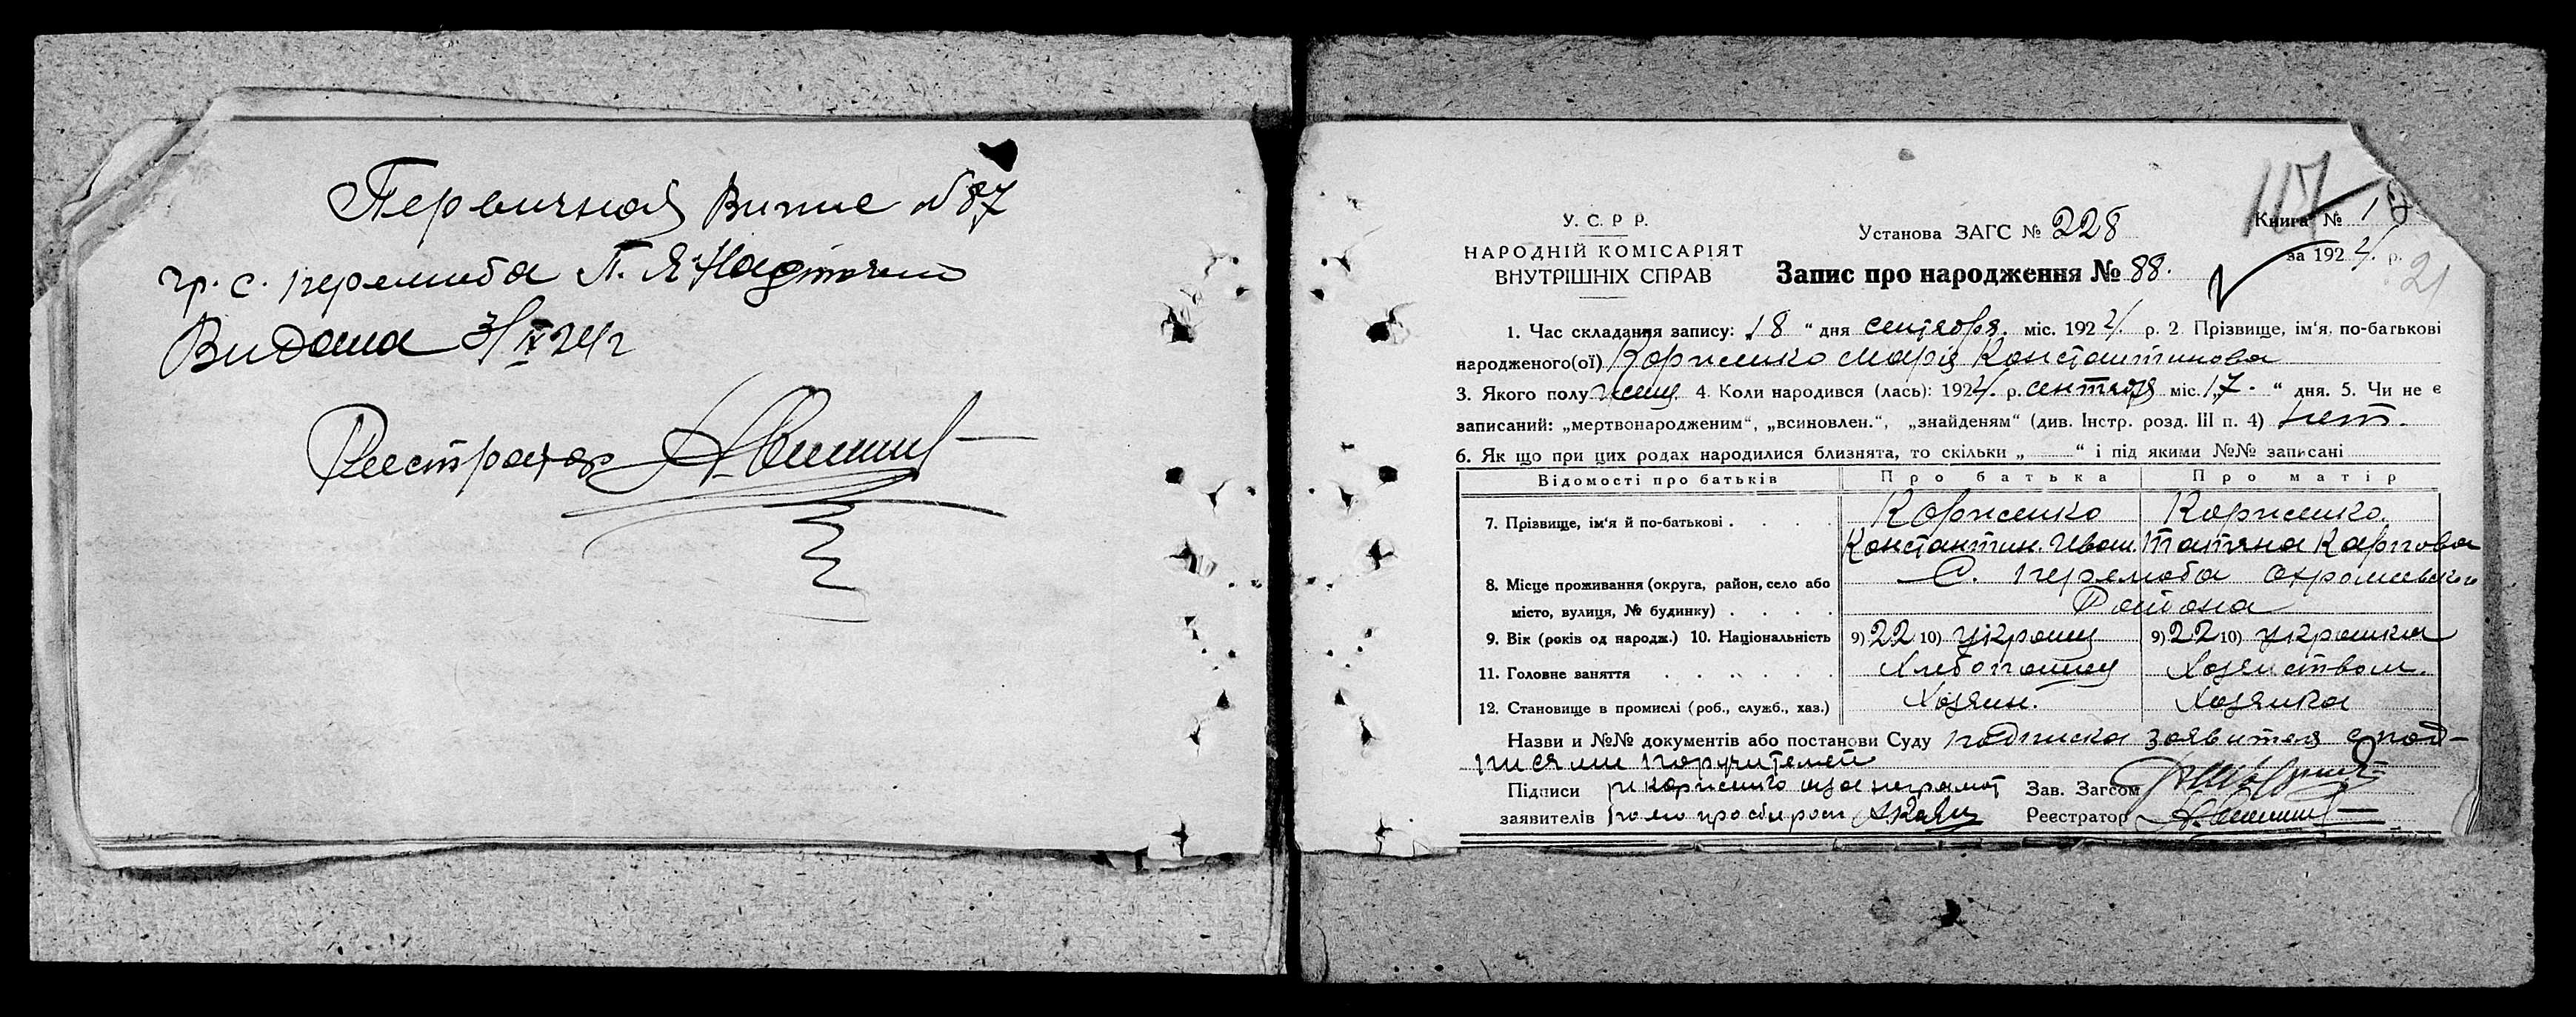 Первичная Випис №87
гр. с. перелюба П. Я.
Видана 3/IX 24 г
Реестратор
117
У.С.Р Р.
НАРОДНІЙ КОМІСАРІЯТ
ВНУТРІШНІХ СПРАВ
Установа ЗАГС № 228
Книга № 1
за 1924 р.
21
Запис про народження № 88.
1. Час складання запису: 18 " дня сентября міс. 1924. р. 2 Прізвище, ім'я, по-батькові
народженого(ої) Корженко Марія Константинова
3. Якого полу женщ 4. Коли народився (лась): 1924. р. сентября міс. 17. " дня. 5. Чи не є
записаний: „мертвонародженим", „всиновлен.", „знайденям" (див. Інстр. розд. III п. 4) нет.
6. Як що при цих родах народилися близнята, то скільки „ " і під якими №№ записані
Відомості про батьків Про батька Про матір
7. Прізвище, ім'я й по-батькові . . . . Корженко Корженко
Константин. Иван. Татяна Карпова
8. Місце проживання (округа, район, село або С. перелюба Охромеевского
місто, вулиця, № будинку) . . . . Района
9. Вік (років од народж.) 10. Національність 9) 22 10) украин 9) 22 10) украинка
11. Головне заняття . . . . . . Хлебопашец Хозяйством.
12. Становище в промислі (роб., служб., хаз.) Хозяин. Хозяйка
Назви и №№ документів або постанови Суду подписка заявителя с под-
писями поручителей
Підписи Корженко неграмот Зав. Загсом
заявителів по его просьбе росп Реестратор